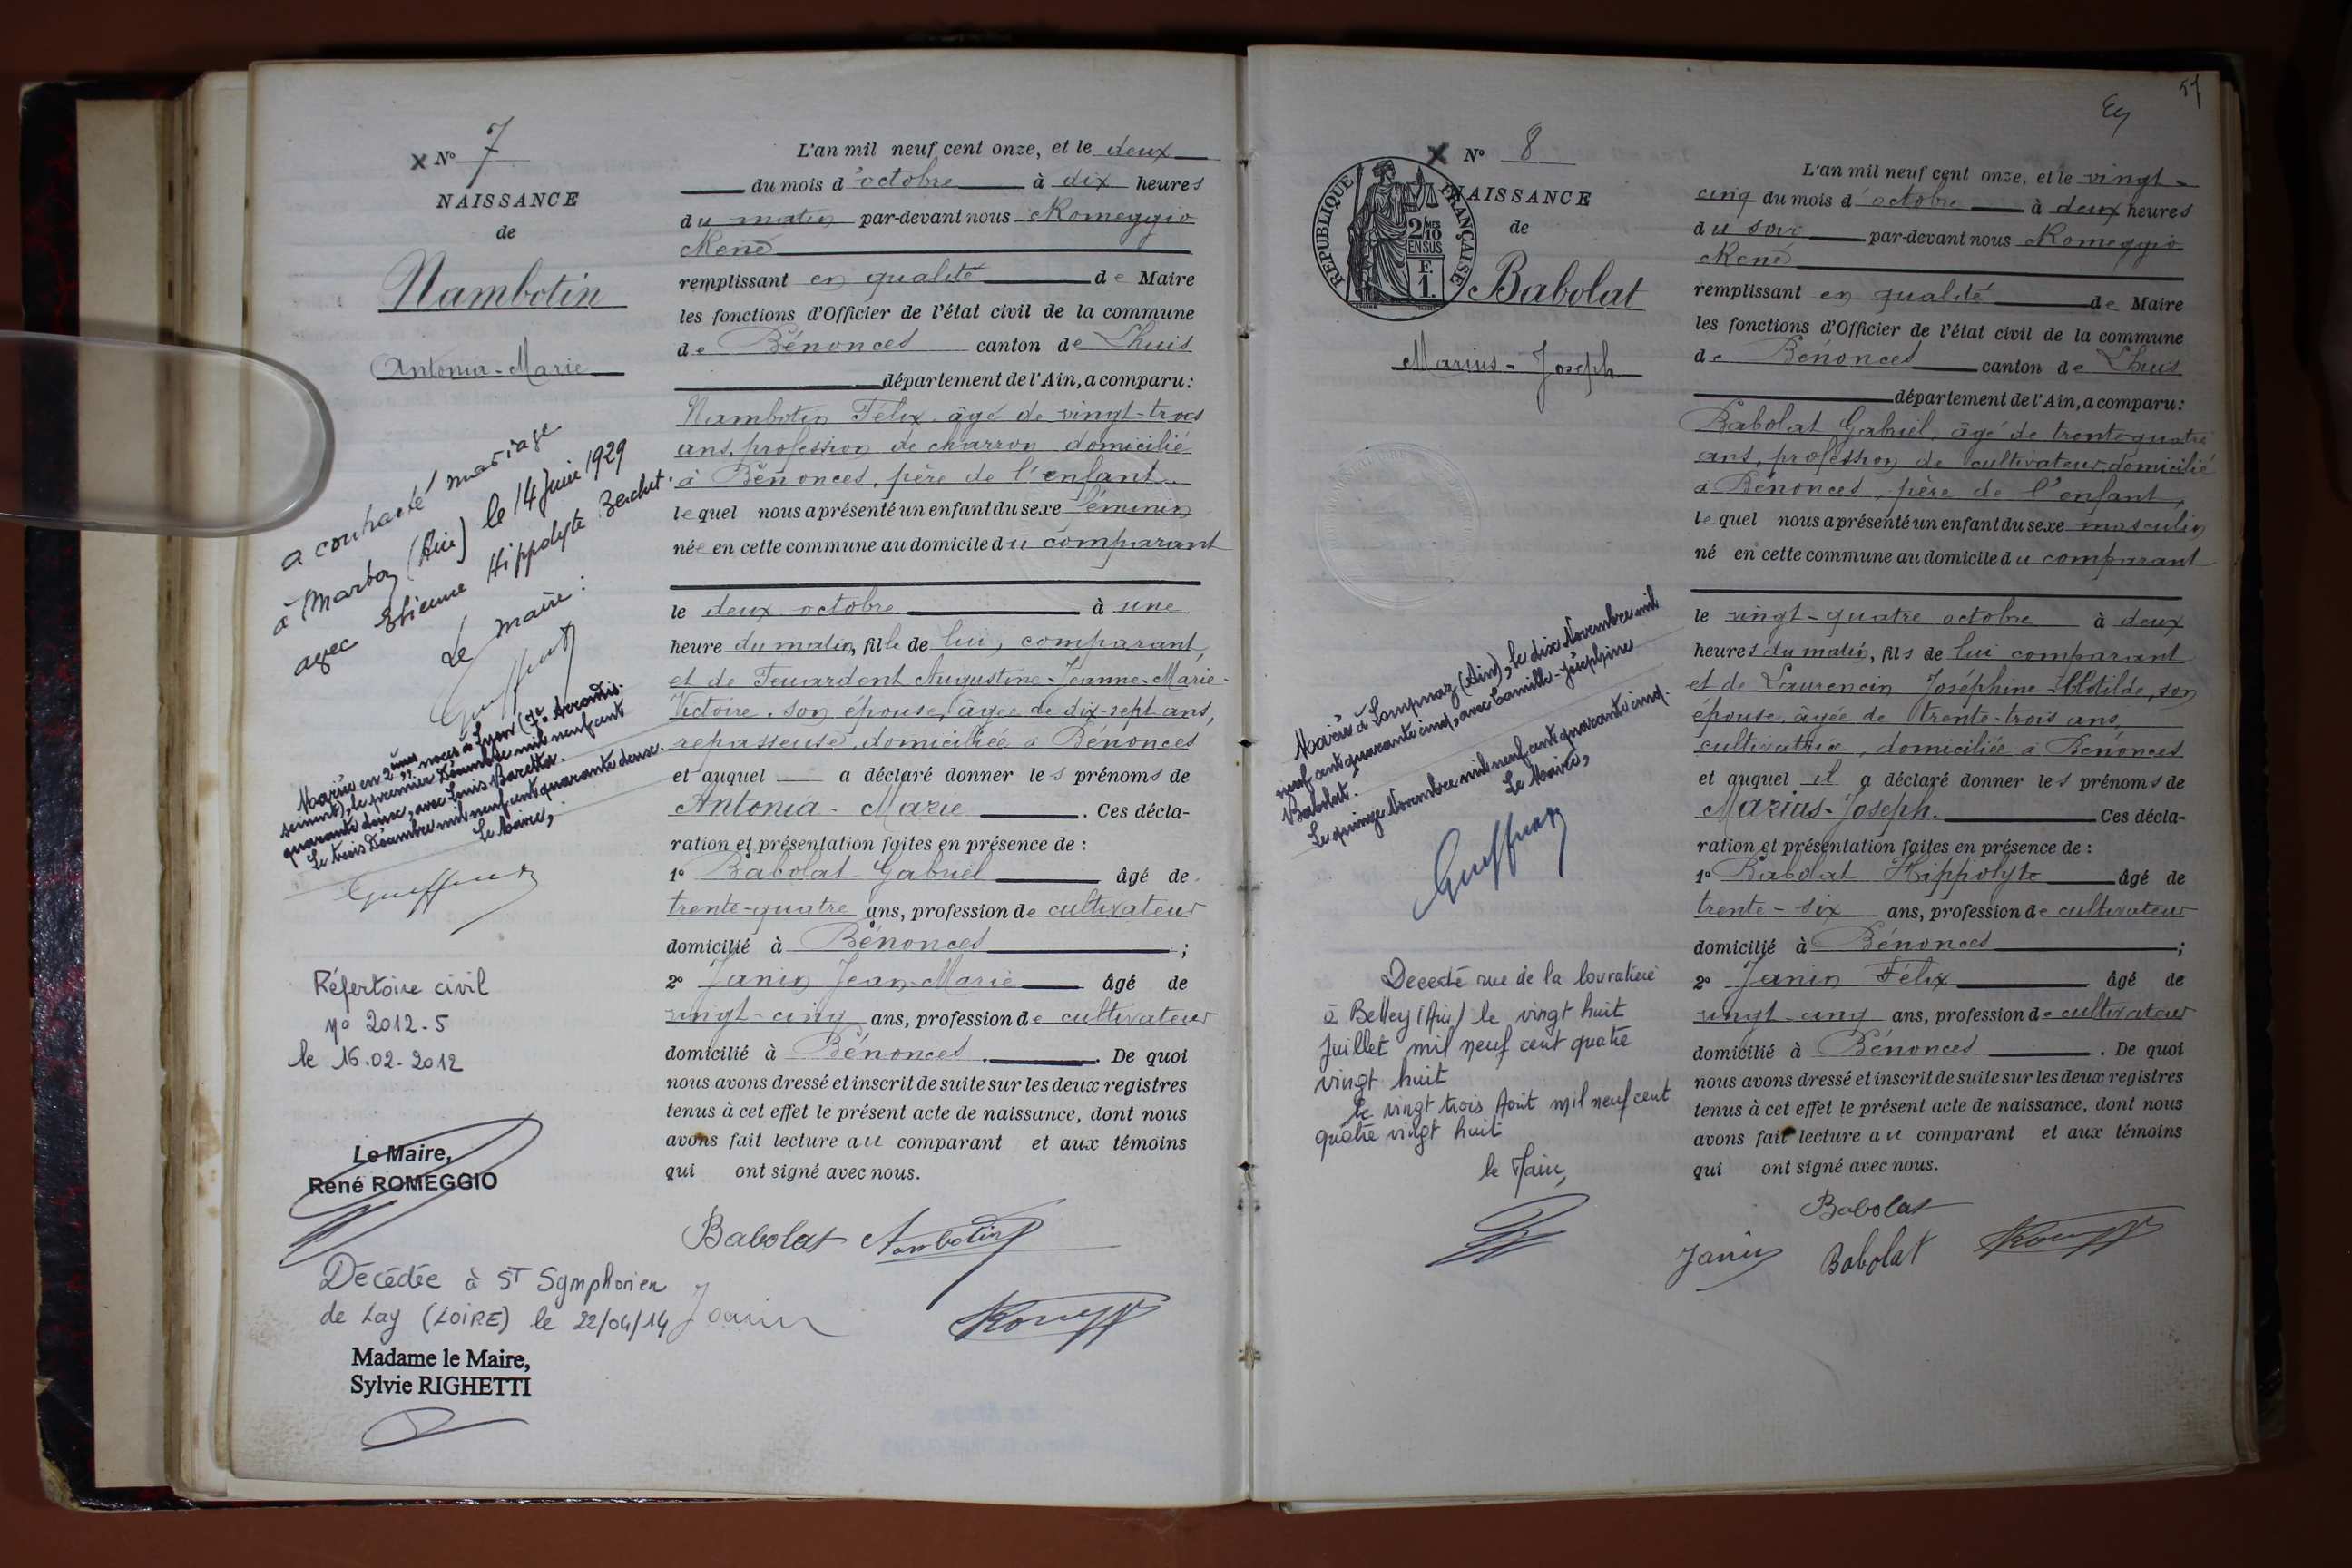 X N° 7
NAISSANCE
de
Nambotin
Antonia-Marie
a contracté mariage
à Marboz (Ain) le 14 Juin 1929
avec Etienne Hippolyte
Le maire :
Mariée en 2èmes noces à Lyon (7e Arrondis-
sement), le premier Décembre mil neuf cent
quarante deux, avec Louis Baretta.
Le trois Décembre mil neuf cent quarante deux.
Le Maire,
Répertoire civil
n° 2012-5
le 16-02-2012
Le Maire,
René ROMEGGIO
Décédée à ST Symphorien
de Lay (LOIRE) le 22/04/14
Madame le Maire,
Sylvie RIGHETTI
L'an mil neuf cent onze, et le deux
du mois d'octobre à dix heures
du matin par-devant nous Romeggio
René
remplissant en qualité de Maire
les fonctions d'Officier de l'état civil de la commune
de Bénonces canton de Lhuis
département de l'Ain, a comparu :
Nambotin Félix, âgé de vingt-trois
ans, profession de charron domicilié
à Bénonces, père de l'enfant
lequel nous a présenté un enfant du sexe féminin
née en cette commune au domicile du comparant
le deux octobre à une
heure du matin, fille de lui, comparant,
et de Feuardent Augustine-Jeanne-Marie-
Victoire, son épouse, âgée de dix-sept ans,
repasseuse, domiciliée à Bénonces
et auquel a déclaré donner les prénoms de
Antonia-Marie. Ces décla-
ration et présentation faites en présence de :
1° Babolat Gabriel âgé de
trente-quatre ans, profession de cultivateur
domicilié à Bénonces ;
2° Janin Jean-Marie âgé de
vingt-cinq ans, profession de cultivateur
domicilié à Bénonces. De quoi
nous avons dressé et inscrit de suite sur les deux registres
tenus à cet effet le présent acte de naissance, dont nous
avons fait lecture au comparant et aux témoins
qui ont signé avec nous.
Babolat Nambotin
Janin
57
X N° 8
NAISSANCE
de
REPUBLIQUE FRANÇAISE
2/10 MES
EN SUS
F.
1.
Babolat
Marius-Joseph
Marié à Lompnaz (Ain), le dix Novembre mil
neuf cent quarante cinq, avec Camille-Joséphine
Babolat.
Le quinze Novembre mil neuf cent quarante cinq.
Le Maire,
Décédé rue de la
à Belley (Ain) le vingt huit
Juillet mil neuf cent quatre
vingt huit
le vingt trois Août mil neuf cent
quatre vingt huit
le Maire,
L'an mil neuf cent onze, et le vingt-
cinq du mois d'octobre à deux heures
du soir par-devant nous Romeggio
René
remplissant en qualité de Maire
les fonctions d'Officier de l'état civil de la commune
de Bénonces canton de Lhuis
département de l'Ain, a comparu :
Babolat Gabriel, âgé de trente-quatre
ans, profession de cultivateur domicilié
à Bénonces, père de l'enfant,
lequel nous a présenté un enfant du sexe masculin
né en cette commune au domicile du comparant
le vingt-quatre octobre à deux
heures du matin, fils de lui comparant
et de Laurencin Joséphine-Clotilde, son
épouse, âgée de trente-trois ans,
cultivatrice, domiciliée à Bénonces
et auquel il a déclaré donner les prénoms de
Marius-Joseph. Ces décla-
ration et présentation faites en présence de :
1° Babolat Hippolyte âgé de
trente-six ans, profession de cultivateur
domicilié à Bénonces ;
2° Janin Félix âgé de
vingt-cinq ans, profession de cultivateur
domicilié à Bénonces. De quoi
nous avons dressé et inscrit de suite sur les deux registres
tenus à cet effet le présent acte de naissance, dont nous
avons fait lecture au comparant et aux témoins
qui ont signé avec nous.
Babolat
Janin Babolat